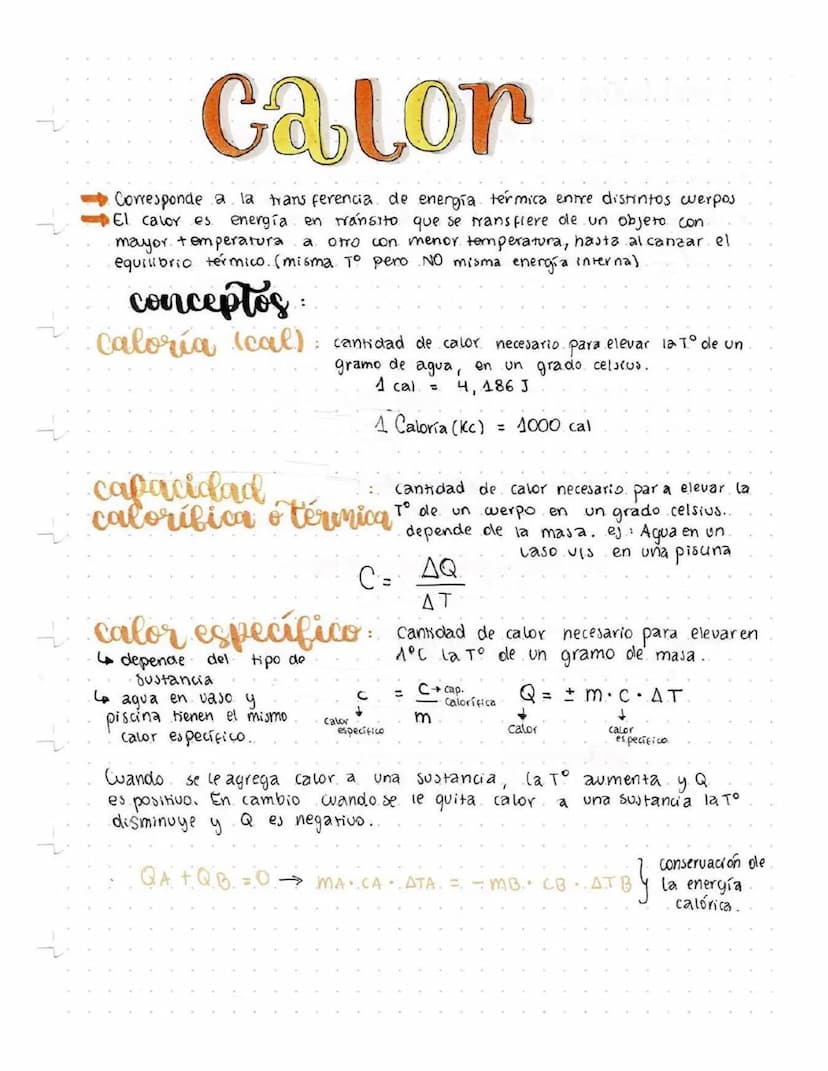 Calor
Corresponde a la transferencia de energía térmica entre distintos cuerpos
El calor es energía en tránsito que se transfiere de un objeto con
mayor temperatura a otro con menor temperatura, hasta alcanzar el
equilibrio térmico. (misma T° pero NO misma energía interna)
conceptos :
caloría (cal) : cantidad de calor necesario para elevar la T° de un
gramo de agua, en un grado celsius.
1 cal = 4,186 J
1 Caloría (Kc) = 1000 cal
capacidad
calorífica o térmica
: cantidad de calor necesario para elevar la
T° de un cuerpo en un grado celsius.
depende de la masa. ej : Agua en un
vaso v/s en una piscina
C = ΔQ / ΔT
calor específico :
↳ depende del tipo de
sustancia
↳ agua en vaso y
piscina tienen el mismo
calor específico.
Cantidad de calor necesario para elevar en
1°C la T° de un gramo de masa.
c = C → cap. calorífica / m
↓
calor específico
Q = ± m · c · ΔT
↓ ↓
calor calor específico
Cuando se le agrega calor a una sustancia, la T° aumenta y Q
es positivo. En cambio cuando se le quita calor a una sustancia la T°
disminuye y Q es negativo.
QA + QB = 0 → mA · CA · ΔTA = - mB · CB · ΔTB } conservación de
la energía
calórica.